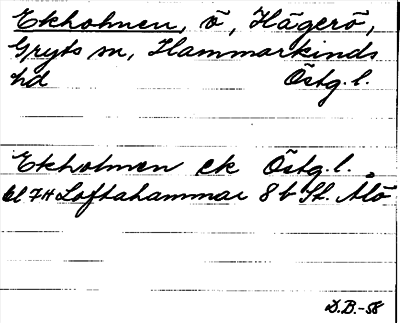 Ekholmen, ö, Hägerö,
Gryts sn, Hammarkinds
hd Östg.l.
Ekholmen ek Östg.l.
bl 7H Loftahammar 8 b St. Ålö
D.B.-58